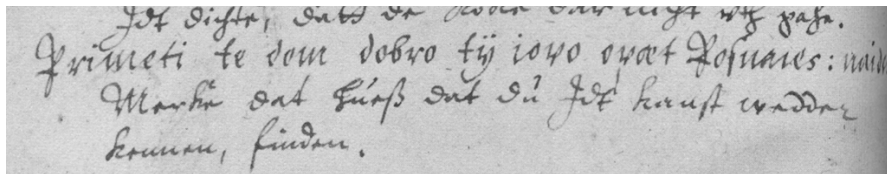 Jdt dichte, datt de dar nicht vth gahe.
Primeti te dom dobro tÿ iovo opæt Posnaies: naid
Mercke dat hueß dat du Jdt kanst wedder
kennen, finden.